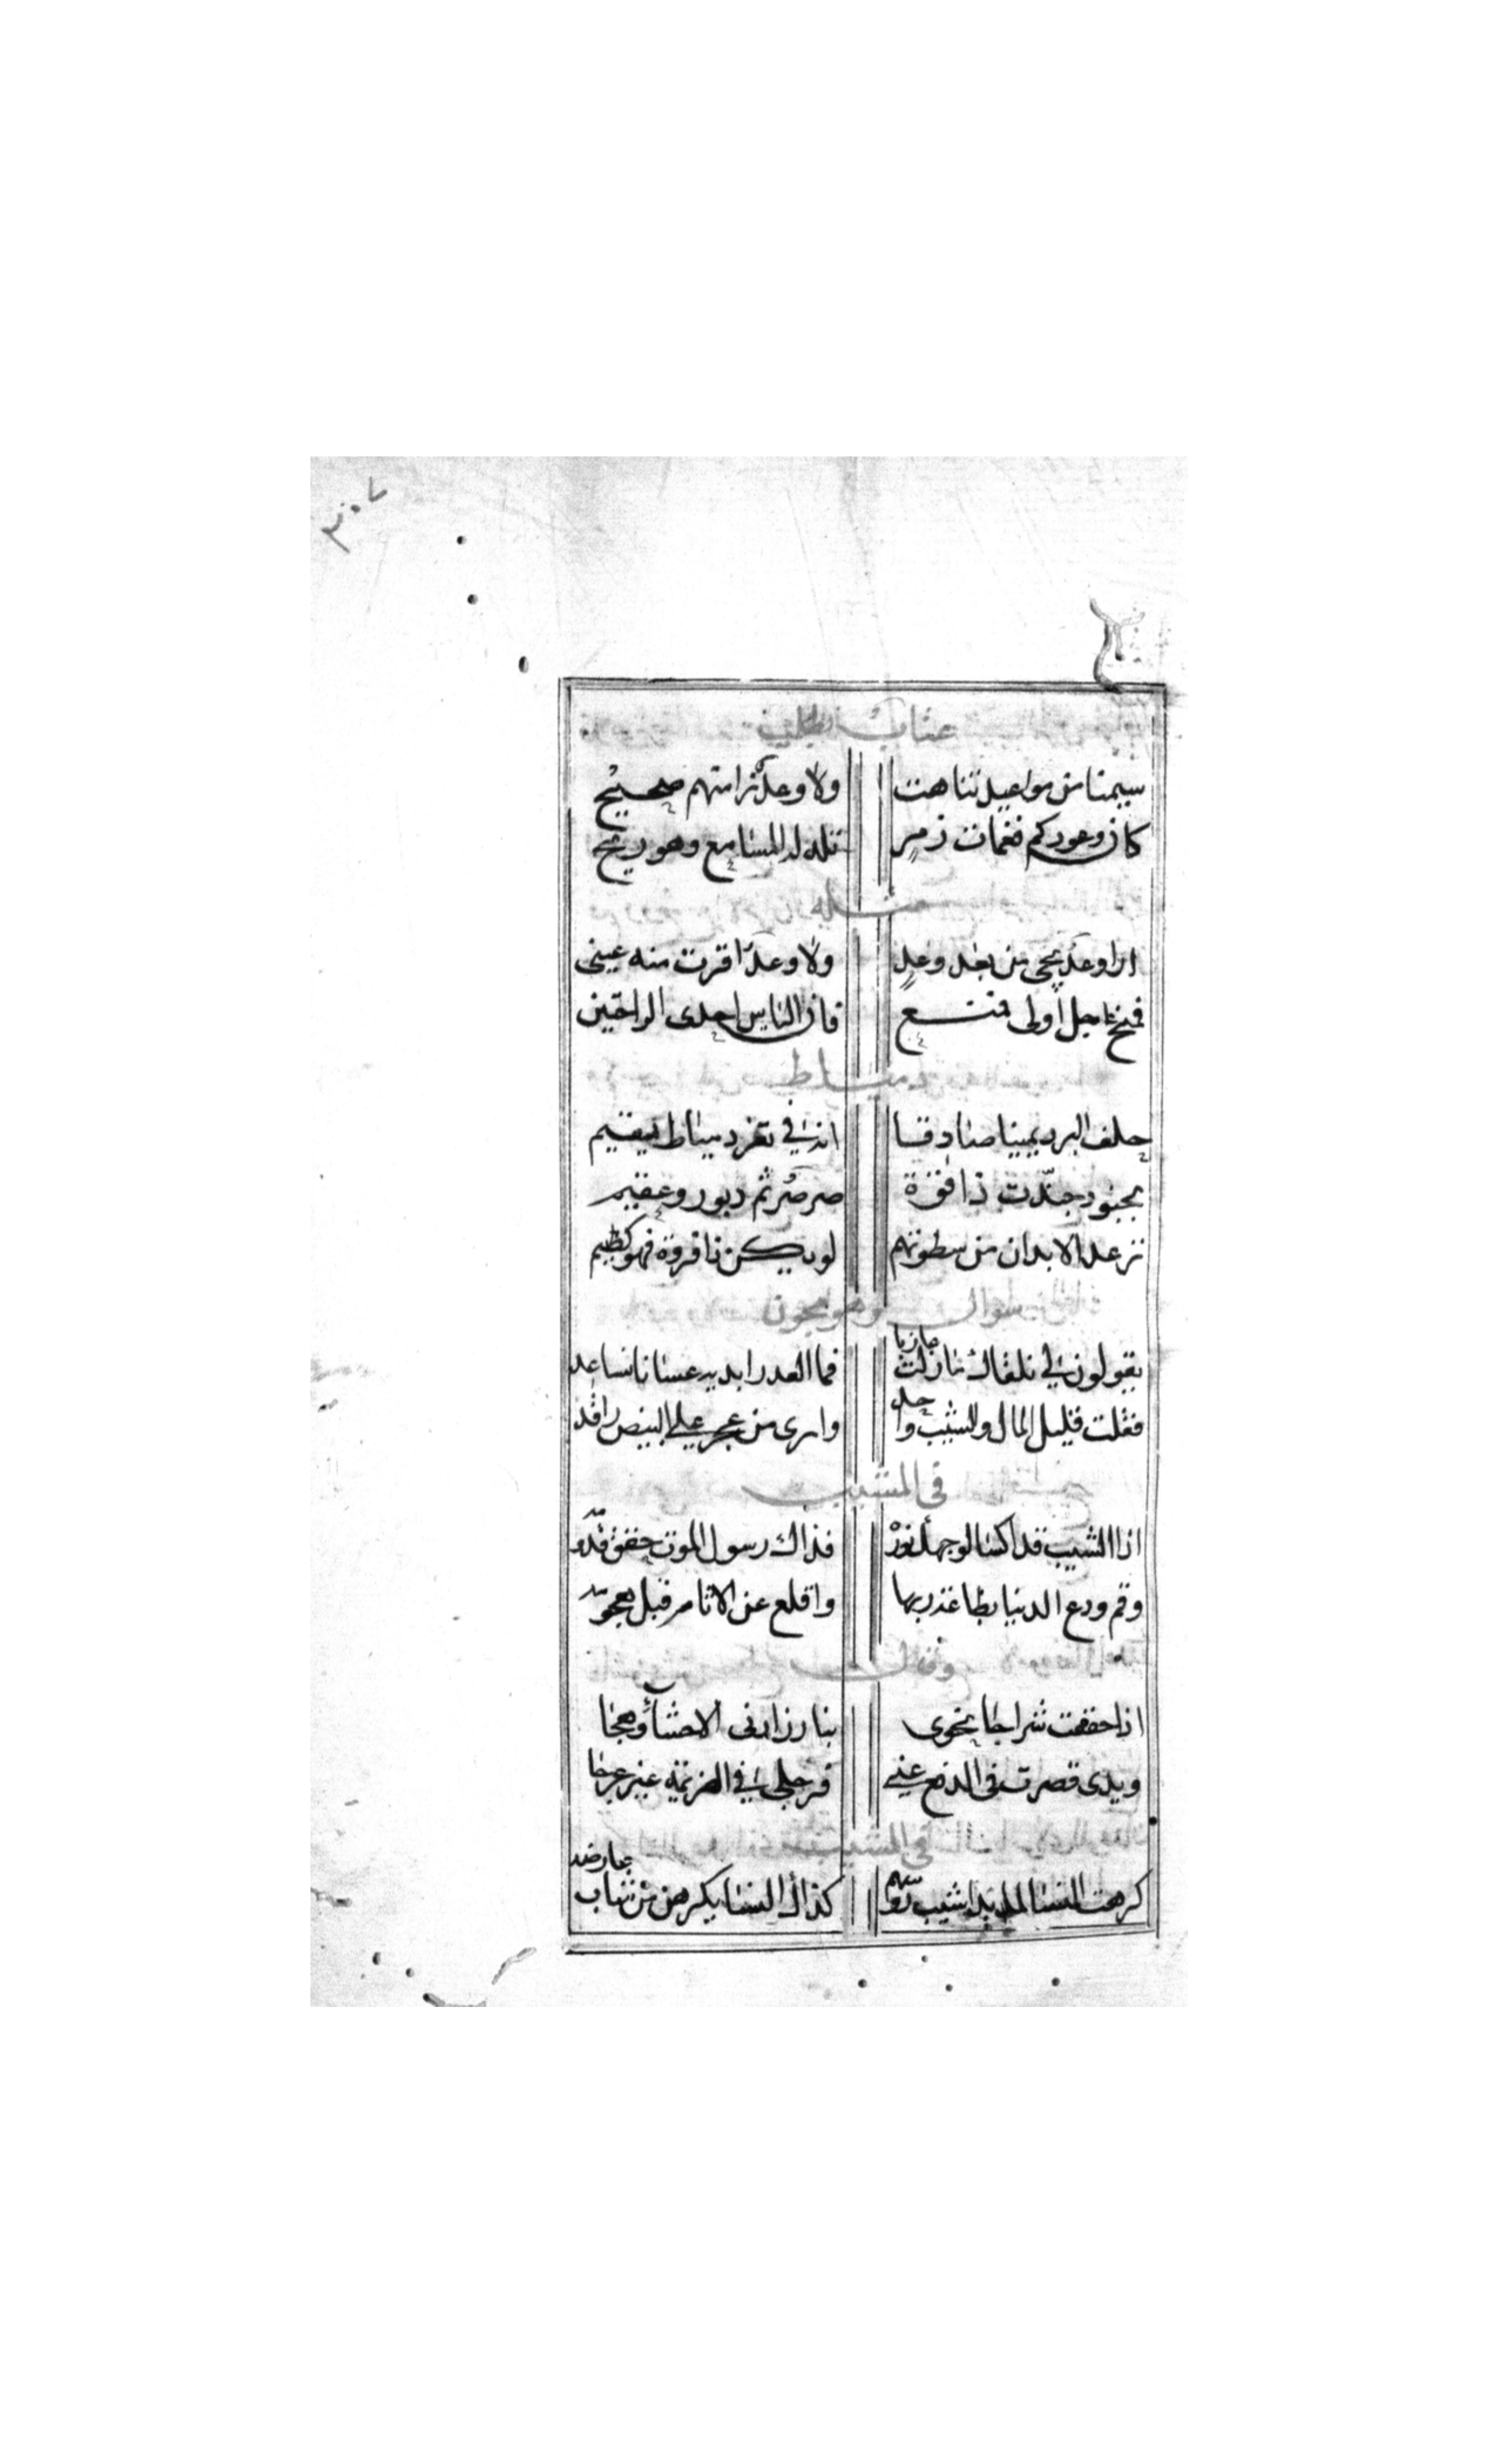 ٣٠٧
عتاب لطيف
سيمنا من مواعيد تناهت ولا وعد نرا منهم صحيح
كان وعودكم نغمات زمر تلد لدا المسامع وهو ريح
مثله
ارا وعد يجى من بعد وعدٍ ولا وعدًا قرت منه عينى
فمنح عاجل أولى فمنع فان الناس احدى الراحتين
دمياط
حلف البرد يمينا صادقا انه فى تغر دمياط يقيم
بجنود جندت ذا قوة صرصر ثم دبور وعقيم
ترعد الابدان من سطوتهم لو يكن ذا فروة فهو كظيم
سوال وهو مجون
يقولون لى نلقاك مازلت جازبا فما العدر ابديه عسانا نساعد
فقلت قليل المال والشيب واحل وايرى من عجز على البيض راقد
فى المشيب
اذا الشيب قد اكسا لوجهك نوره فذاك رسول الموت حقق قدومه
وقم ودع الدنيا بطاعة ربها واقلع عن الاثام قبل هجومه
وقال
اذا حققت شرا جا نحوى بنار زاد فى الاحشاء وهجا
ويدى قصرت فى الدفع عنى فرجلى فى الهزيمة غير عرجا
فى المشيب
كرهت النسا لما بدا شيب روسهم كذاك النسا يكرهن من شاب عارضه